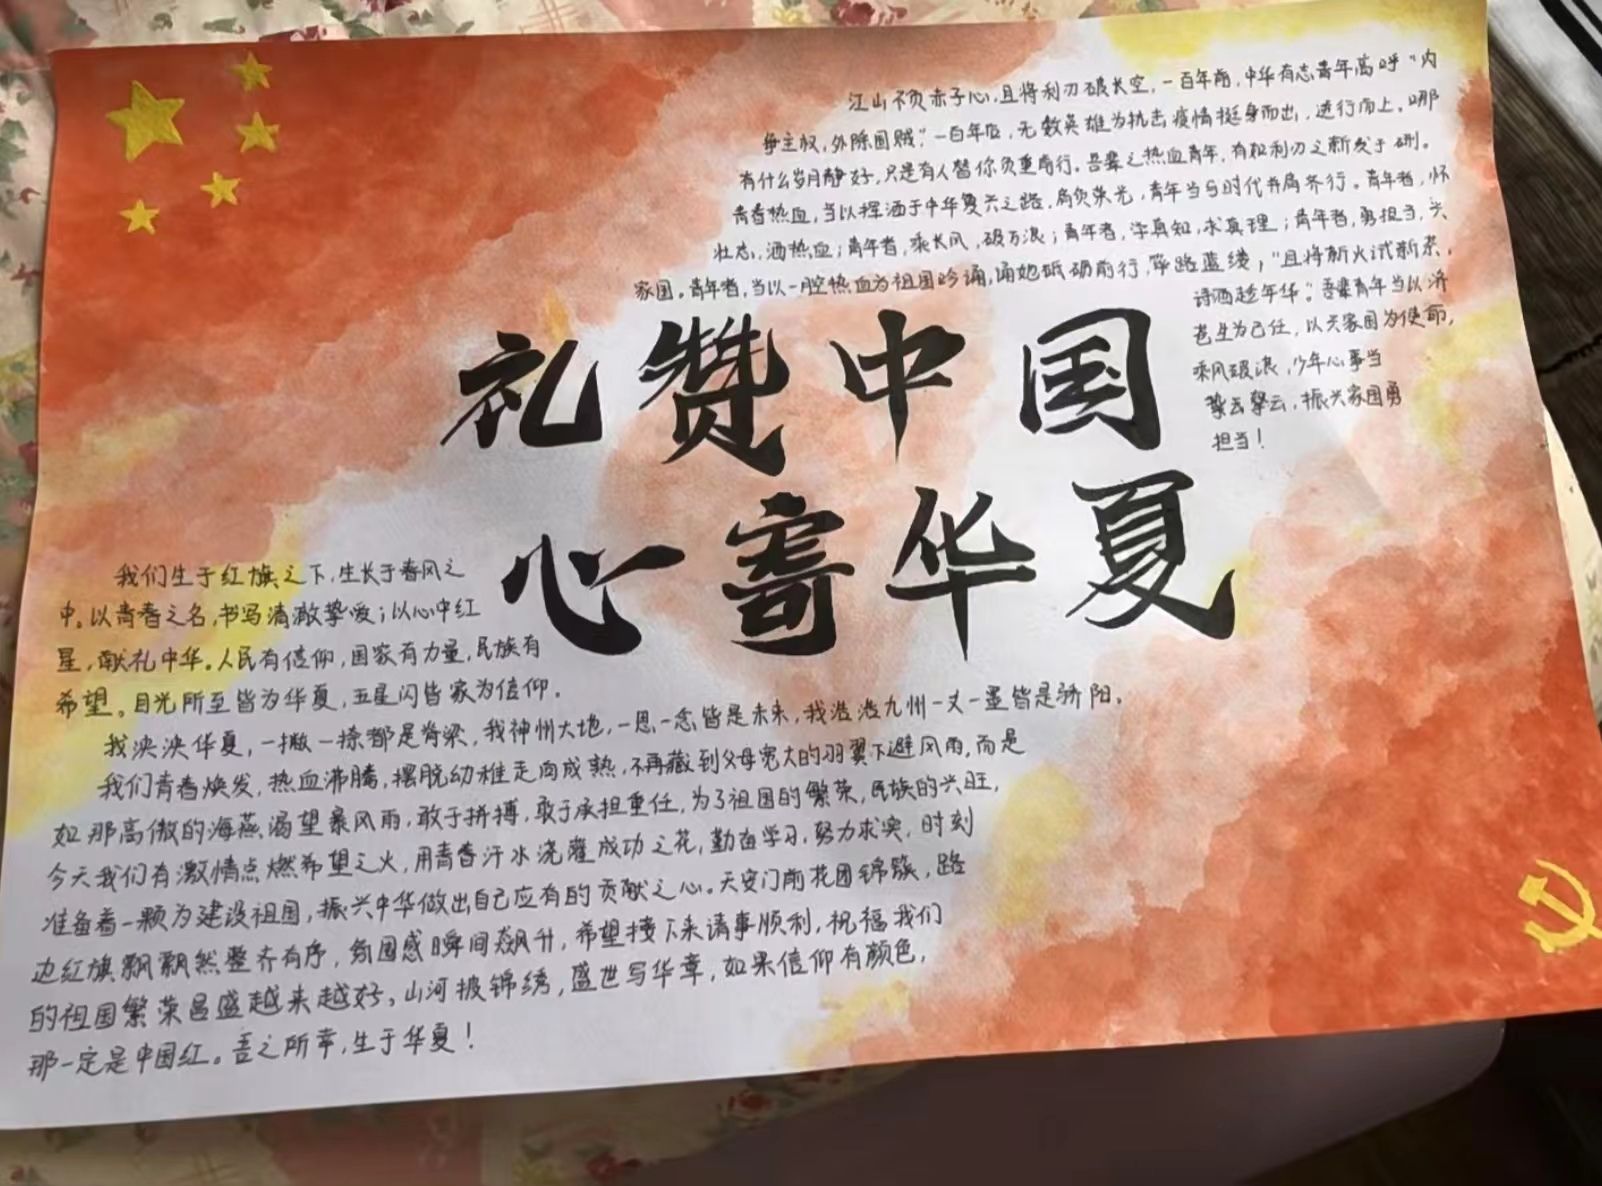 江山不负赤子心,且将利刃破长空,一百年前,中华有志青年高呼“内
争主权,外除国贼”;一百年后,无数英雄为抗击疫情挺身而出,逆行而上。哪
有什么岁月静好,只是有人替你负重前行。吾辈之热血青年,有如利刃之新发于硎。
青春热血,当以挥洒于中华复兴之路,肩负荣光,青年当与时代并肩齐行。青年者,怀
壮志,洒热血;青年者,乘长风,破万浪;青年者,学真知,求真理;青年者,勇担当,兴
家国。青年者,当以一腔热血为祖国吟诵,诵她砥砺前行,筚路蓝缕,“且将新火试新茶,
诗酒趁年华”。吾辈青年当以济
苍生为己任,以兴家国为使命,
乘风破浪,少年心事当
擎云,振兴家国勇
担当!
礼赞中国
心寄华夏
我们生于红旗之下,生长于春风之
中。以青春之名,书写清澈挚爱;以心中红
星,献礼中华。人民有信仰,国家有力量,民族有
希望。目光所至皆为华夏,五星闪皆家为信仰。
我泱泱华夏,一撇一捺都是脊梁,我神州大地,一思一念皆是未来,我浩浩九州一丈一墨皆是骄阳。
我们青春焕发,热血沸腾,摆脱幼稚走向成熟,不再藏到父母宽大的羽翼下避风雨,而是
如那高傲的海燕渴望暴风雨,敢于拼搏,敢于承担重任,为了祖国的繁荣,民族的兴旺,
今天我们有激情点燃希望之火,用青春汗水浇灌成功之花,勤奋学习,努力求实,时刻
准备着一颗为建设祖国,振兴中华做出自己应有的贡献之心。天安门前花团锦簇,路
边红旗飘飘然整齐有序,氛围感瞬间飙升,希望接下来请事顺利,祝福我们
的祖国繁荣昌盛越来越好。山河披锦绣,盛世写华章,如果信仰有颜色,
那一定是中国红。吾之所幸,生于华夏!